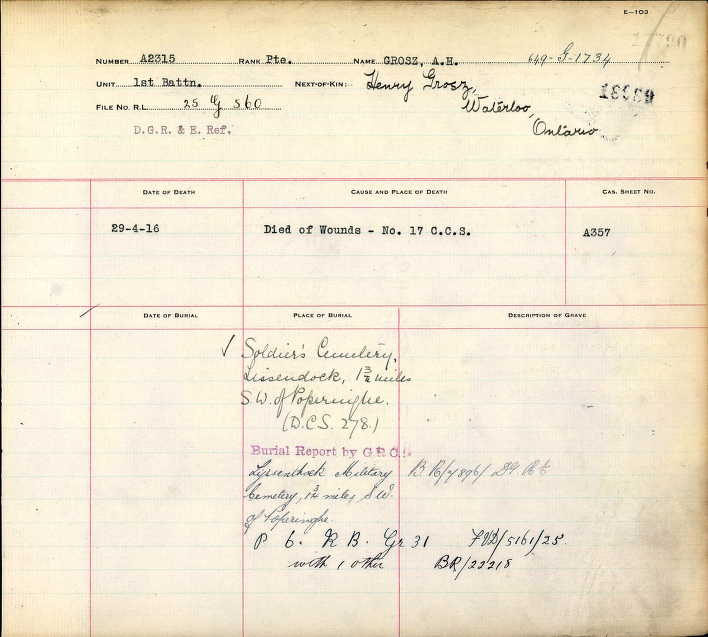 E—103
NUMBER A2315 RANK Pte. NAME GROSZ, A.H. 649-G-1734
UNIT 1st Battn. NEXT-OF-KIN: Henry Grosz,
Waterloo,
Ontario
FILE NO. R.L. 25 G 560
D.G.R. & E. Ref.
DATE OF DEATH CAUSE AND PLACE OF DEATH CAS. SHEET NO.
29-4-16 Died of Wounds - No. 17 C.C.S. A357
DATE OF BURIAL PLACE OF BURIAL DESCRIPTION OF GRAVE
✓ Soldier's Cemetery,
Lissendock, 1¾ miles
S.W. of Poperinghe.
(D.C.S. 278.)
Burial Report by G.R.C.
Lyssenthock Military
Cemetery, 1¾ miles S.W.
of Poperinghe.
P 6. R B. Gr 31 FVD/5161/25.
with 1 other BR/22218